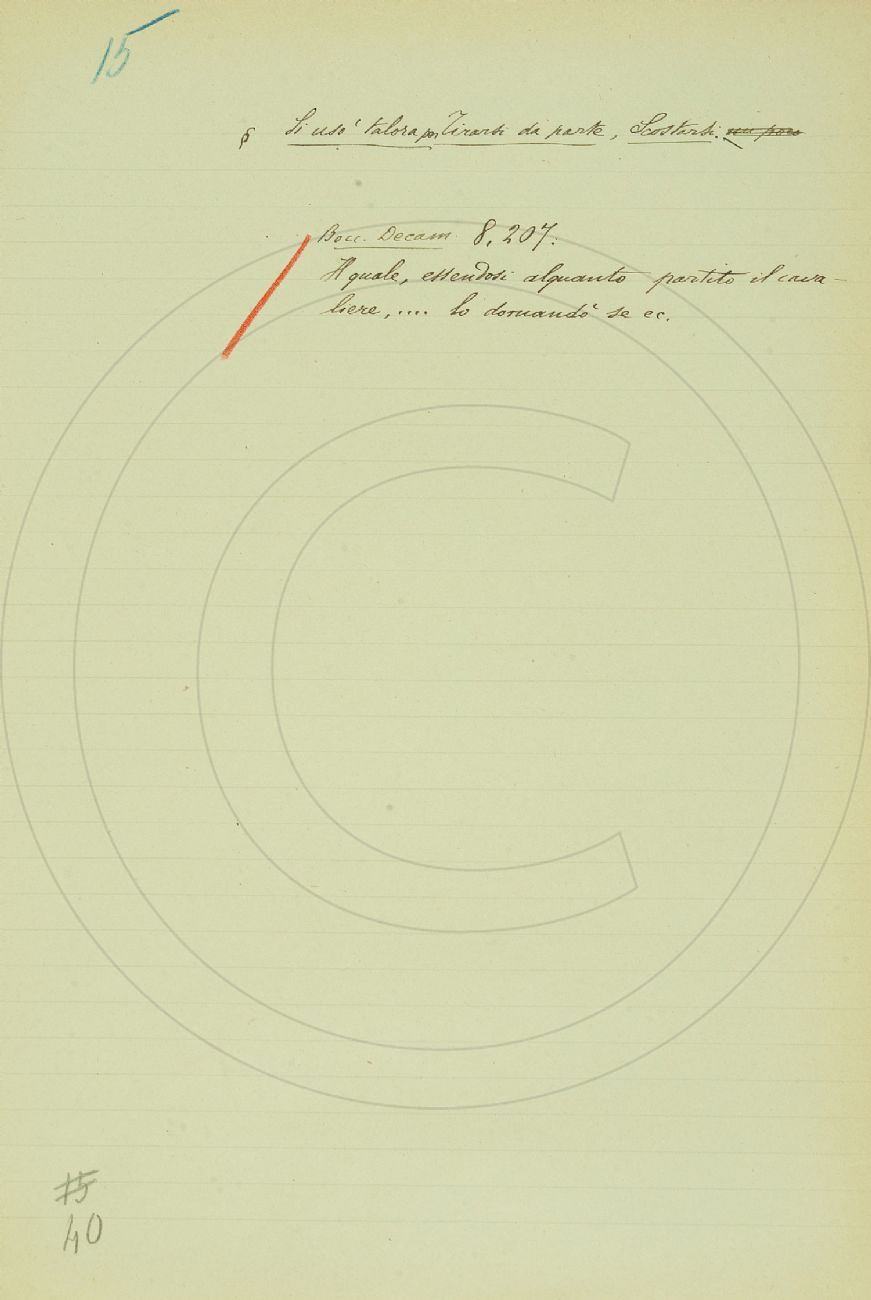 15
§ Si usò talora per Tirarsi da parte, Scostarsi. un poco
Bocc. Decam. 8, 207.
Il quale, essendosi alquanto partito il cava-
liere, .... lo domandò se ec.
15
40